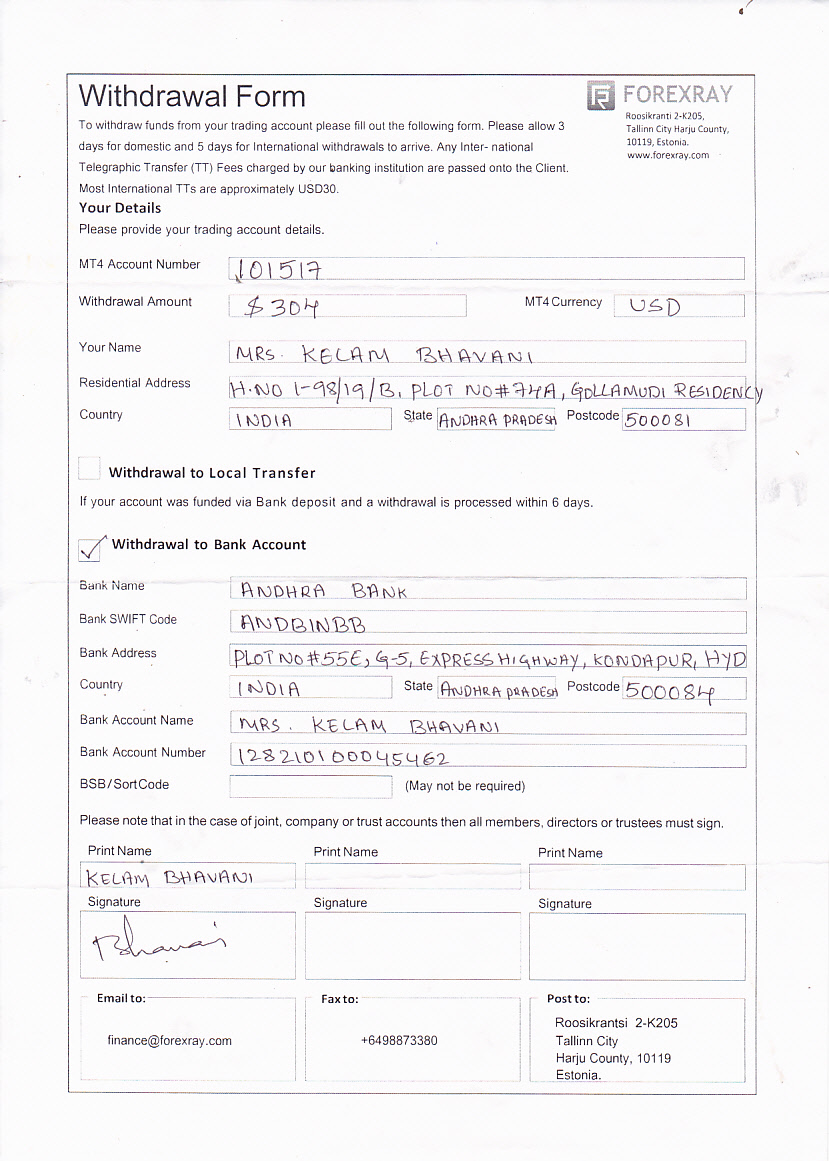 Withdrawal Form
FOREXRAY
Roosikranti 2-K205,
Tallinn City Harju County,
10119, Estonia.
www.forexray.com
To withdraw funds from your trading account please fill out the following form. Please allow 3
days for domestic and 5 days for International withdrawals to arrive. Any Inter- national
Telegraphic Transfer (TT) Fees charged by our banking institution are passed onto the Client.
Most International TTs are approximately USD30.
Your Details
Please provide your trading account details.
MT4 Account Number 101517
Withdrawal Amount $ 304 MT4 Currency USD
Your Name MRS. KELAM BHAVANI
Residential Address H.NO 1-98/19/B, PLOT NO#74A, GOLLAMUDI RESIDENCY
Country INDIA State ANDHRA PRADESH Postcode 500081
Withdrawal to Local Transfer
If your account was funded via Bank deposit and a withdrawal is processed within 6 days.
Withdrawal to Bank Account
Bank Name ANDHRA BANK
Bank SWIFT Code ANDBINBB
Bank Address PLOT NO#55E, G-5, EXPRESS HIGHWAY, KONDAPUR, HYD
Country INDIA State ANDHRA PRADESH Postcode 500084
Bank Account Name MRS. KELAM BHAVANI
Bank Account Number 128210100045462
BSB/SortCode (May not be required)
Please note that in the case of joint, company or trust accounts then all members, directors or trustees must sign.
Print Name Print Name Print Name
KELAM BHAVANI
Signature Signature Signature
Bhavani
Email to: Fax to: Post to:
finance@forexray.com +6498873380 Roosikrantsi 2-K205
Tallinn City
Harju County, 10119
Estonia.